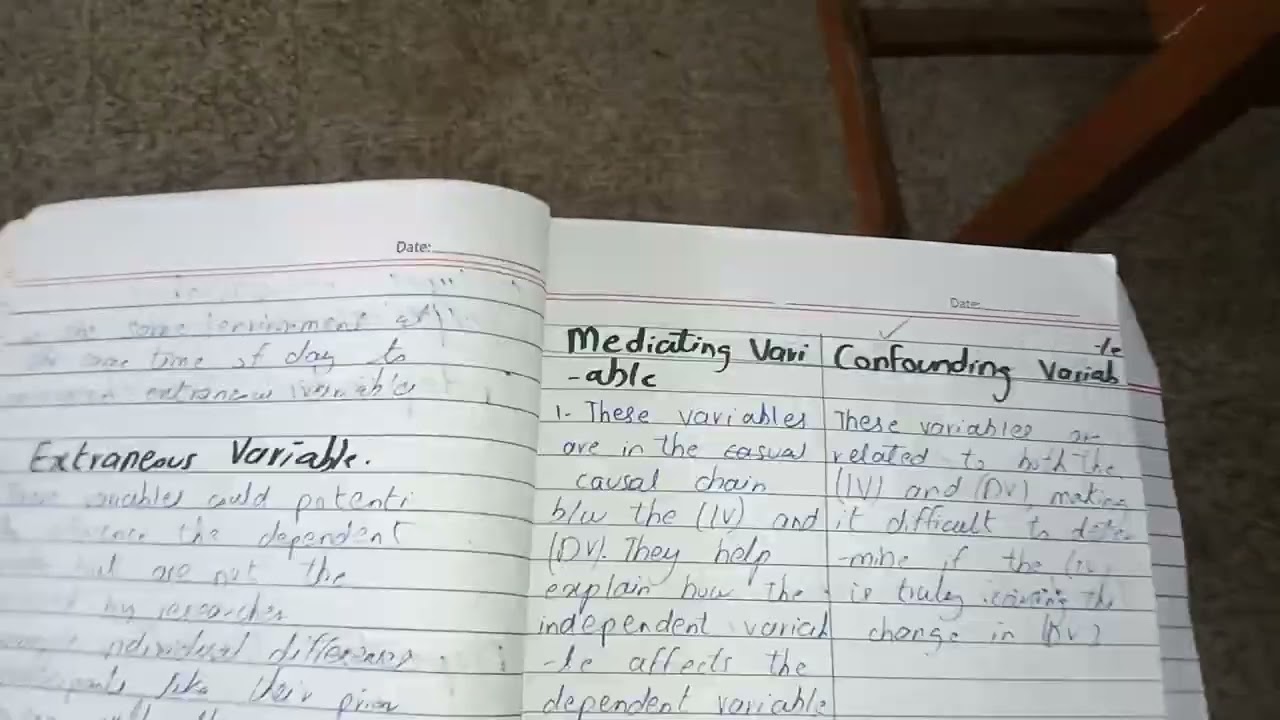 Date:
same environment at
same time of day to
extraneous variable
Extraneous Variable.
variables could potenti
the dependent
are not the
by researcher
individual differences
like their prior
Date:
Mediating Vari
-able
1. These variables
are in the casual
causal chain
b/w the (IV) and
(DV). They help
explain how the
independent variab
-le affects the
dependent variable
-le
Confounding Variab
These variables
related to both the
(IV) and (DV) making
it difficult to deter
-mine if the
is truly the
change in (DV)